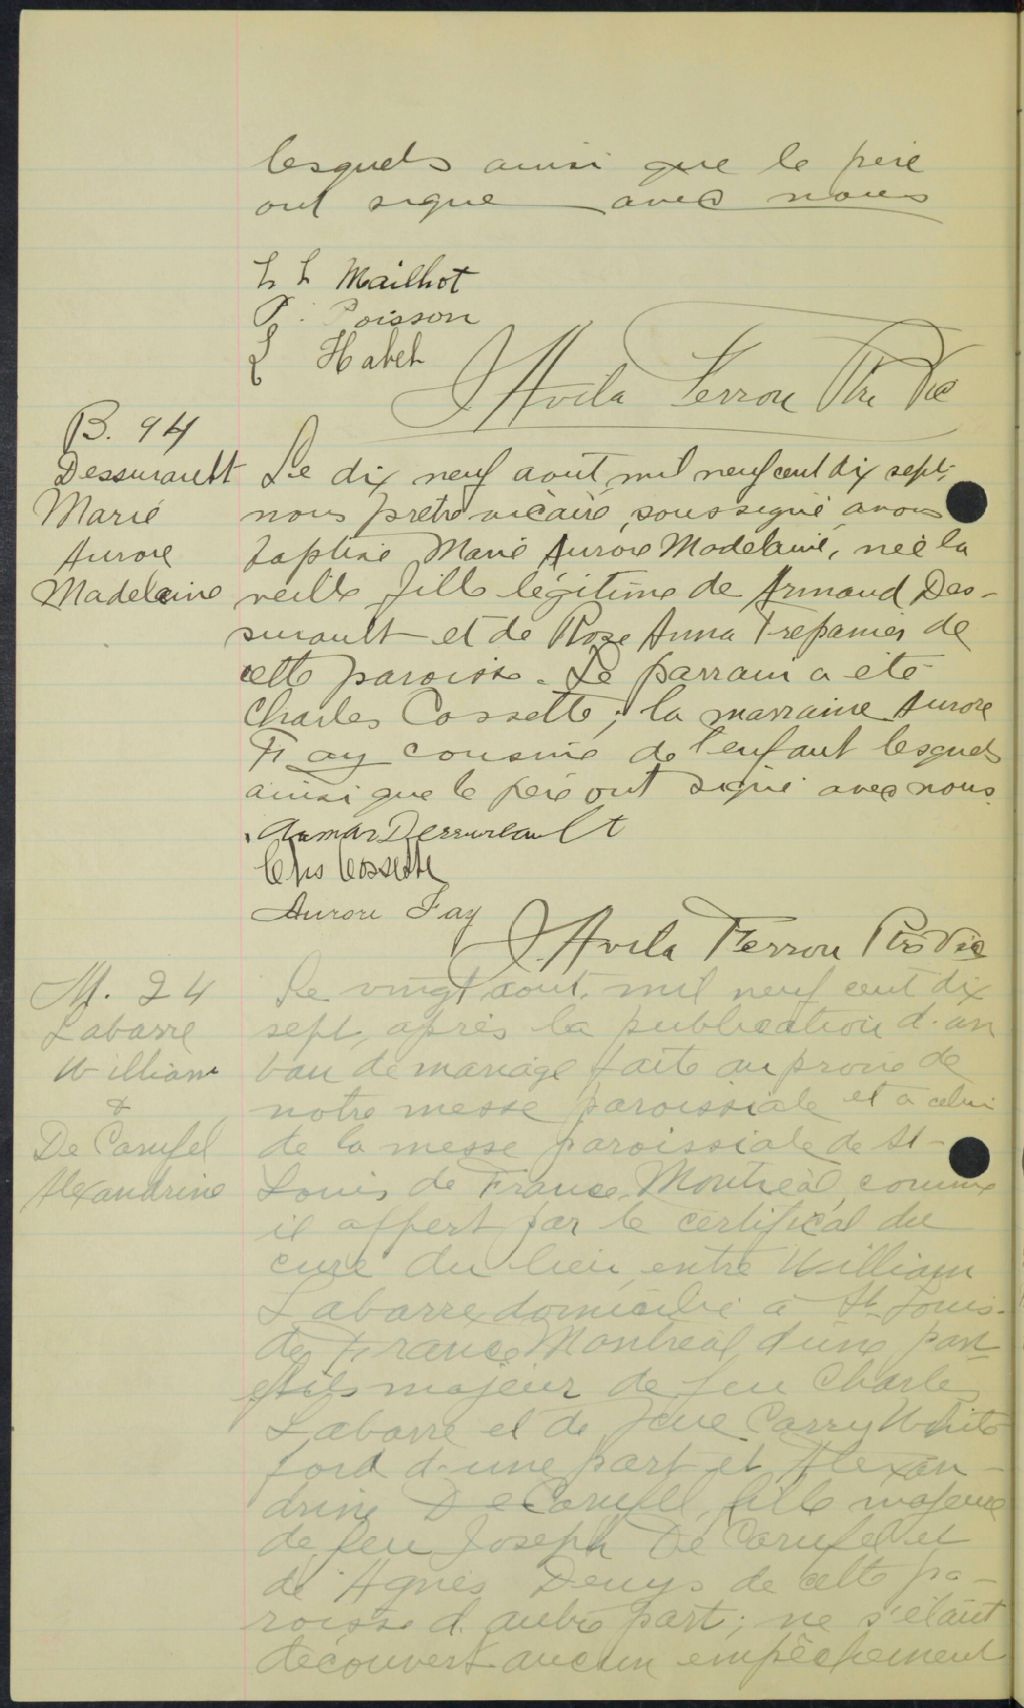 lesquels ainsi que le père
ont signé avec nous
L L Mailhot
P. Poisson
L Habel
J Avila Ferron Ptre Vic
B. 94
Dessurault
Marie
Aurore
Madeleine
Le dix neuf aout mil neuf cent dix sept,
nous prêtre vicaire, soussigné avons
baptisé Marie Aurore Madelaine, née la
veille fille légitime de Armand Des-
surault et de Rose Anna Trepanier de
cette paroisse. Le parrain a été
Charles Cossette; la marraine Aurore
Fay cousine de l'enfant lesquels
ainsi que le père ont signé avec nous.
Armar Dessureault
Chs Cossette
Aurore Fay
J. Avila Ferron Ptre Vic
M. 24
Labarre
William
&
De Carufel
Alexandrine
Le vingt aout, mil neuf cent dix
sept, après la publication d'un
ban de mariage faite au prone de
notre messe paroissiale et à celui
de la messe paroissiale de St-
Louis de France, Montréal, comme
il appert par le certificat du
curé du lieu, entre William
Labarre, domicilié à St-Louis-
de France Montréal d'une part
fils majeur de feu Charles
Labarre et de feue Carry White
ford d'une part et Alexan-
drine De Carufel, fille majeure
de feu Joseph De Carufel et
de Agnès Denys de cette pa-
roisse d'autre part; ne s'étant
découvert aucun empêchement